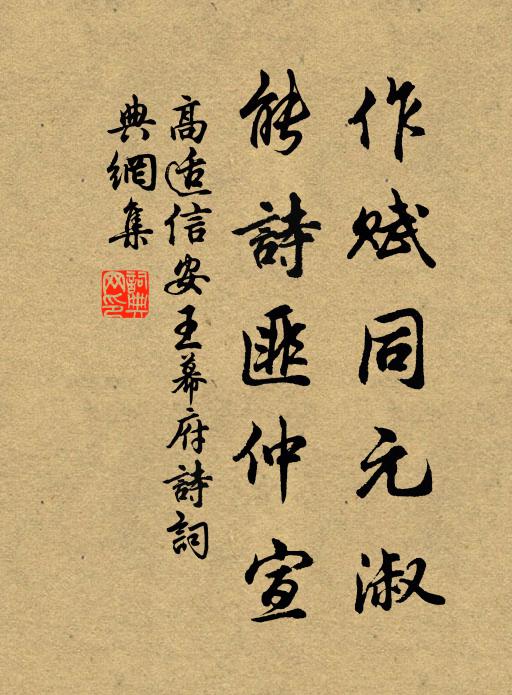 作賦同元淑
能詩匪仲宣
高適信安王幕府詩詞
典網集
詞典网印